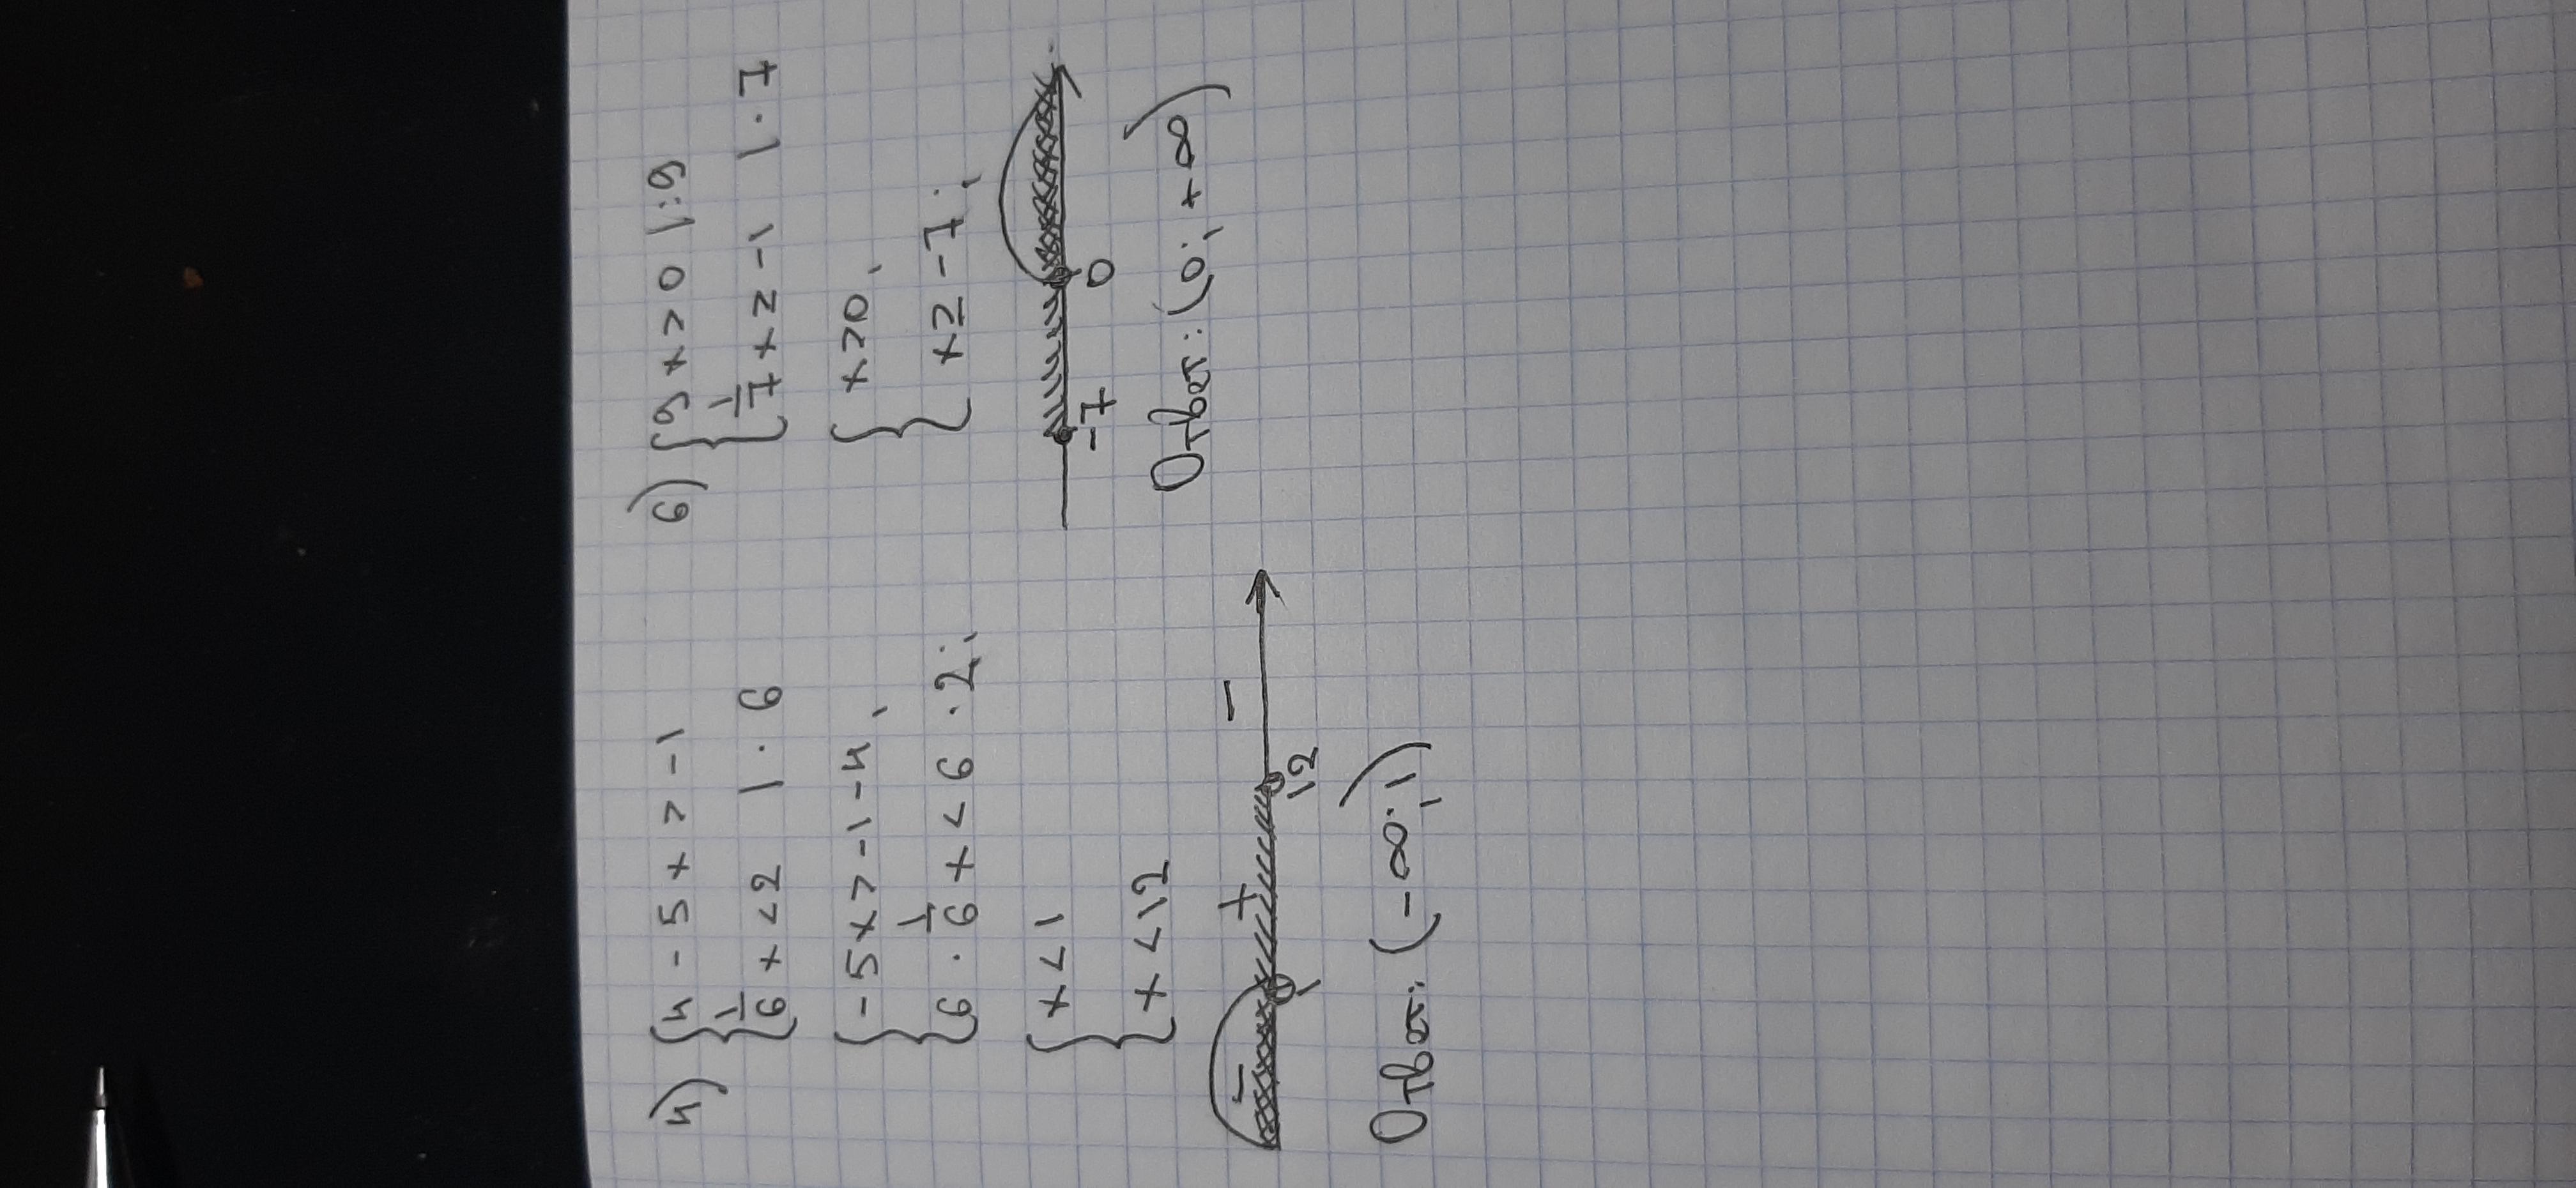 4) { 4 - 5x > -1
{ 1/6 x < 2 | · 6
{ -5x > -1 - 4,
{ 6 · 1/6 x < 6 · 2;
{ x < 1
{ x < 12
- + -
1 12
Ответ: (-∞; 1)
6) { 9x > 0 | : 9
{ 1/7 x ≥ -1 | · 7
{ x > 0,
{ x ≥ -7;
-7 0
Ответ: (0; +∞)